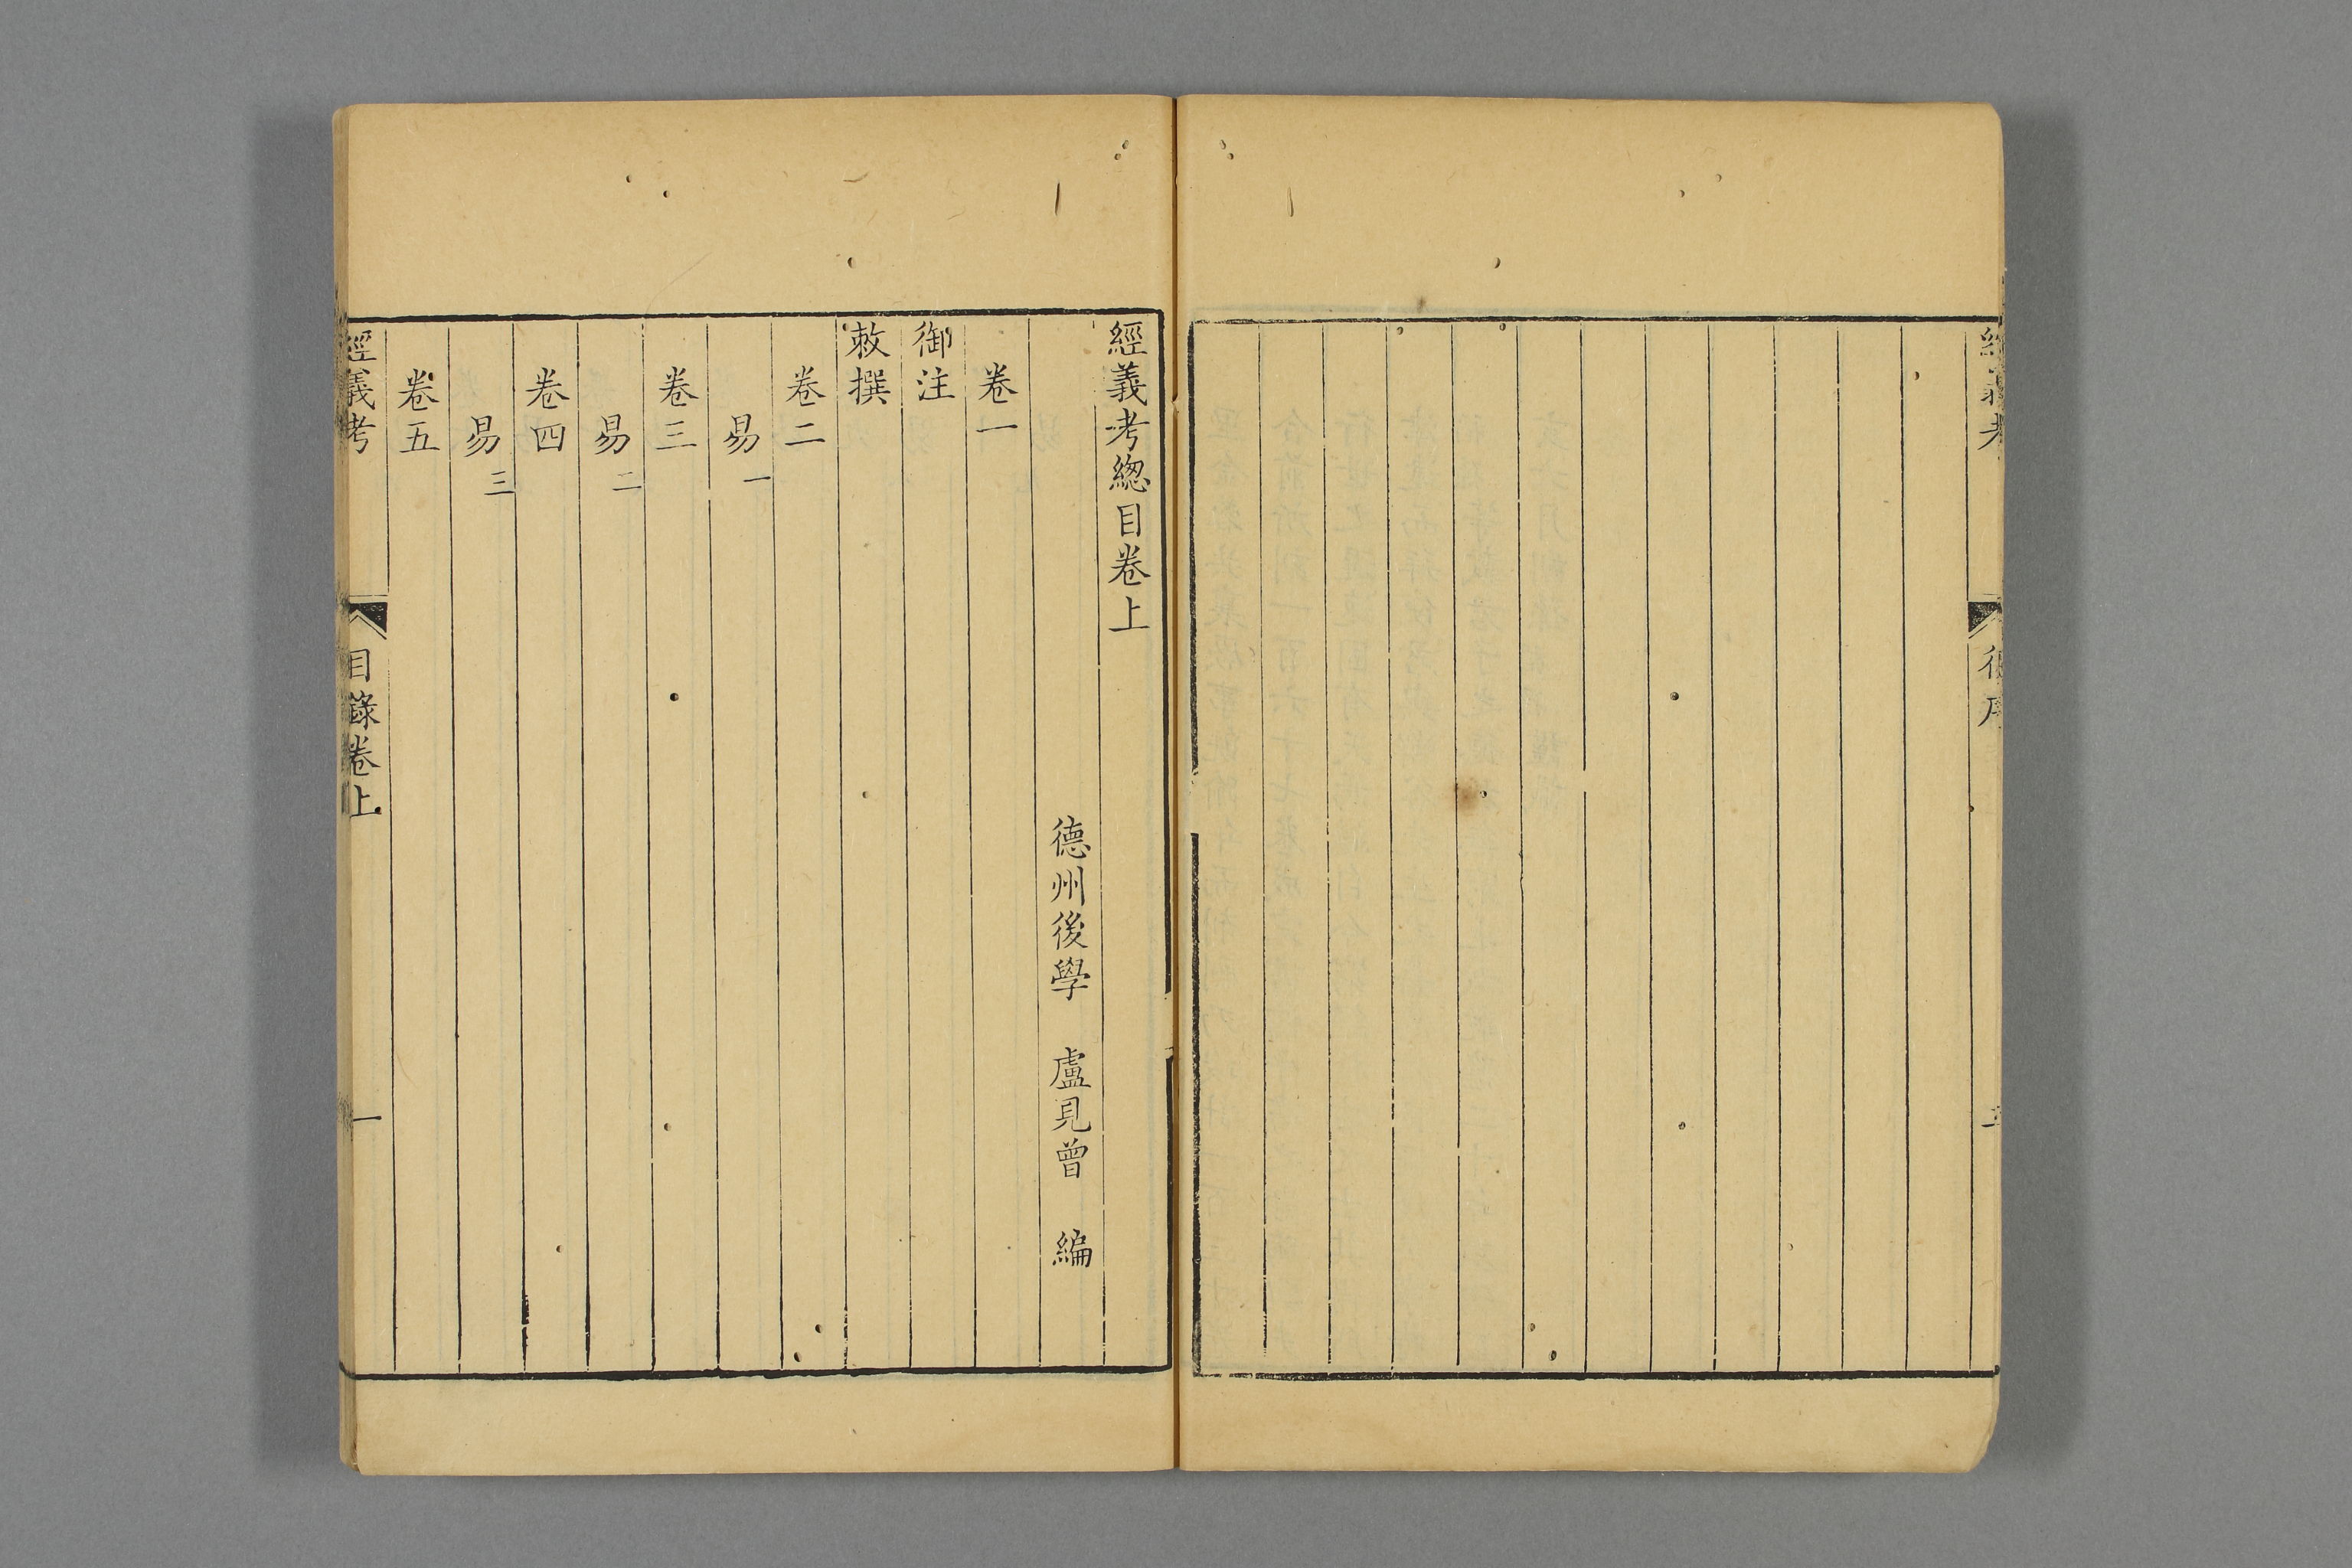 經義考總目卷上
德州後學　盧見曾　編
卷一
御注
敕撰
卷二
易一
卷三
易二
卷四
易三
卷五
經義考　目錄卷上　一